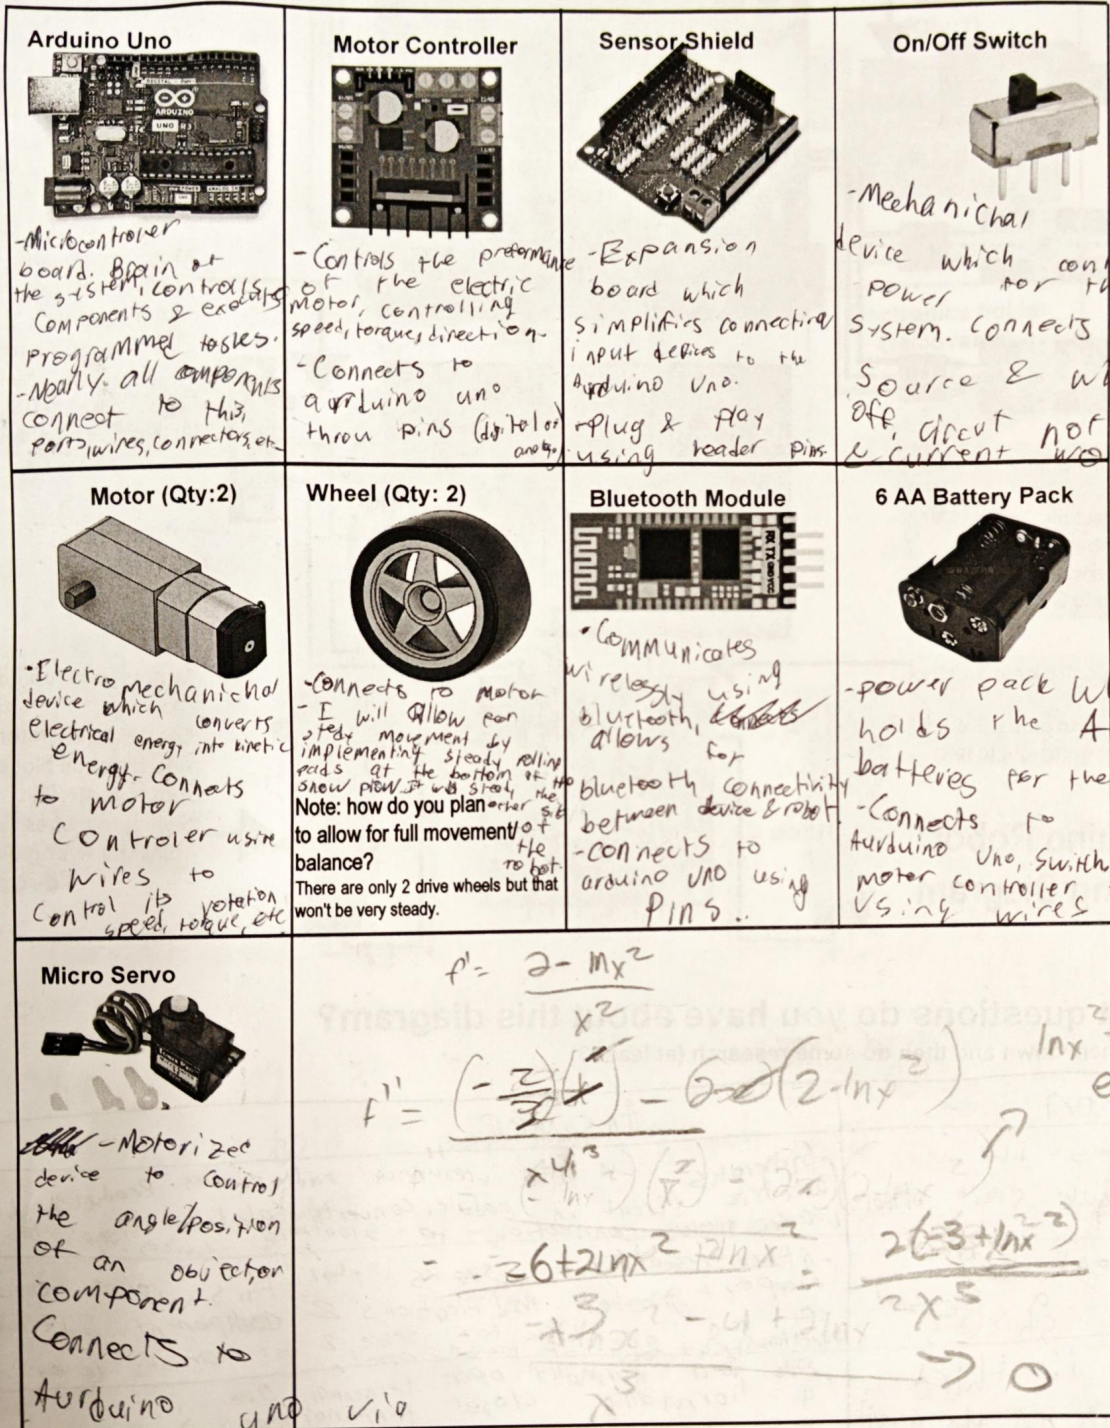 Arduino Uno
-Microcontroler
board. Brain of
the system, controlls
components & executes
programmed tasks.
-Nearly all components
connect to this,
ports, wires, connectors, etc.
Motor Controller
-Controls the preformance
of the electric
motor, controlling
speed, torque, direction.
-Connects to
aurduino uno
throu pins (digital or
analog)
Sensor Shield
-Expansion
board which
simplifies connecting
input devices to the
Aurduino Uno.
-Plug & Play
using header pins.
On/Off Switch
-Mechanichal
device which
power for
system. Connects
Source &
off, circut not
& current
Motor (Qty:2)
•Electromechanichal
device which converts
electrical energy into kinetic
energy. Connects
to motor
Controler using
wires to
Control its rotation
speed, torque, etc
Wheel (Qty: 2)
-Connects to motor
- I will allow for
stedy movement by
implementing steady rolling
pads at the bottom of the
snow plow. It will stedy the
other side
of
the
robot.
Note: how do you plan
to allow for full movement/
balance?
There are only 2 drive wheels but that
won't be very steady.
Bluetooth Module
RX TX GND VCC
•Communicates
wirelessly using
bluetooth,
allows for
bluetooth connectivity
between device & robot.
-connects to
arduino UNO using
Pins..
6 AA Battery Pack
-power pack
holds the
batteries for the
-Connects to
Aurduino Uno, Switch
motor controller
using wires
Micro Servo
-Motorized
device to control
the angle/position
of an object, or
component.
Connects to
Aurduino uno via
f' = 2 - lnx²
x²
f'' =
(2-lnx²)
lnx²
-6+2lnx²
2(-3+lnx²)
x³
→ 0
questions do you have about this diagram?